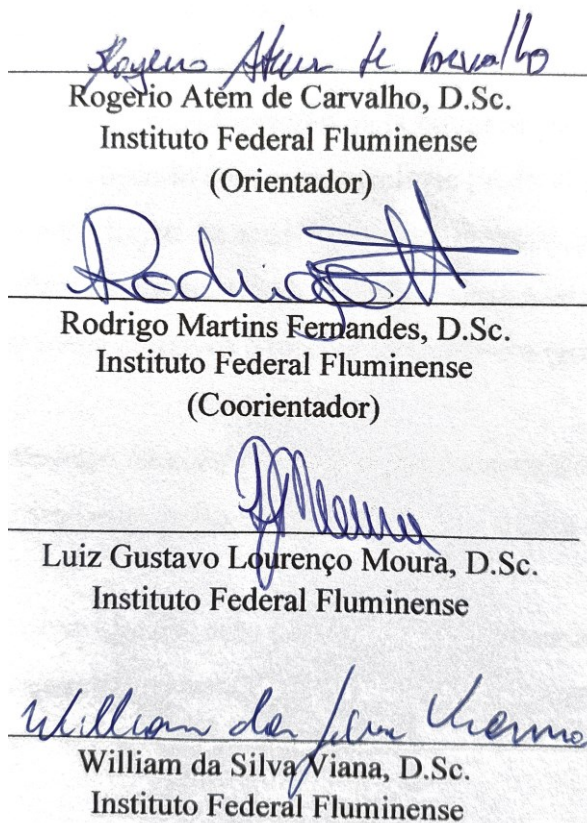 Rogerio Atem de Carvalho
Rogério Atem de Carvalho, D.Sc.
Instituto Federal Fluminense
(Orientador)
Rodrigo
Rodrigo Martins Fernandes, D.Sc.
Instituto Federal Fluminense
(Coorientador)
Luiz Gustavo Lourenço Moura, D.Sc.
Instituto Federal Fluminense
William da Silva Viana
William da Silva Viana, D.Sc.
Instituto Federal Fluminense